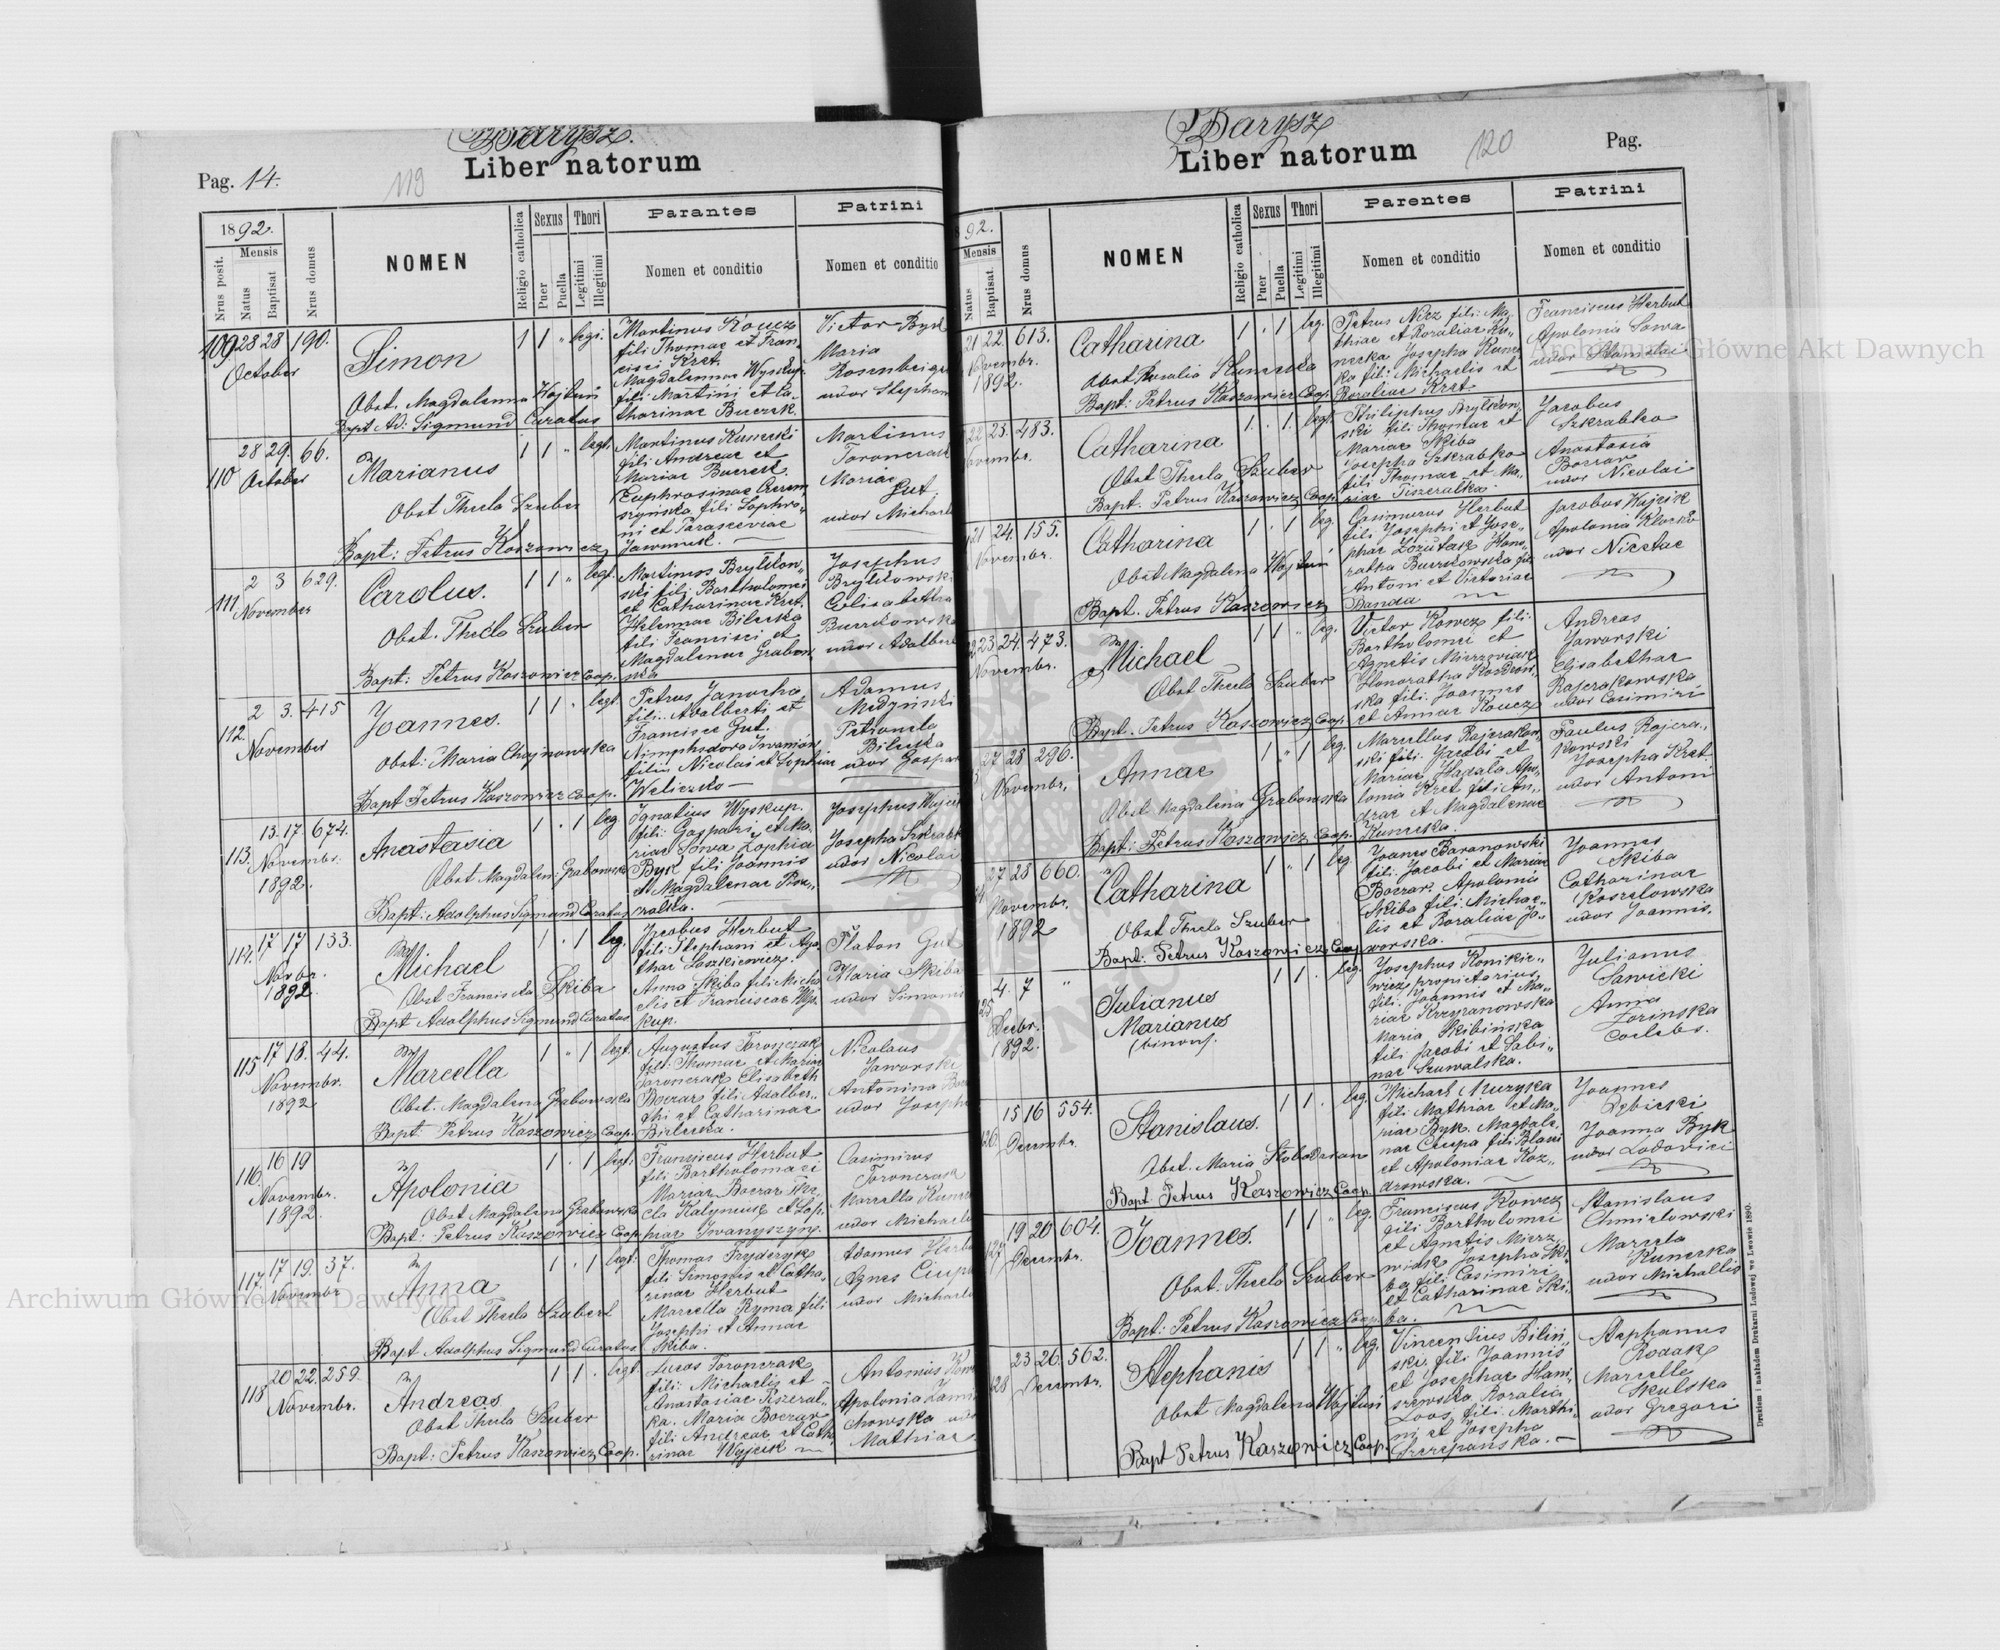 Barysz.
Liber natorum
Pag. 14.
119
1892.
Mensis
Nrus posit.
Natus
Baptisat
Nrus domus
NOMEN
Religio catholica
Sexus
Puer
Puella
Thori
Legitimi
Illegitimi
Parantes
Nomen et conditio
Patrini
Nomen et conditio
109 28 28 190.
October
Simon
1 1 " legi.
Obst. Magdalena Wojtuń
Bapt Ad: Sigmund Curatus
Martinus Koucz
fili Thomae et Fran-
cisci Kret.
Magdalenae Wyskup.
fili Martini et Ca-
tharinae Buczek.
Victor Byk
Maria
uxor Stephan
110 28 29. 66.
October
Marianus
1 1 " legt.
Obst Thecla Szuber
Bapt: Petrus Koszowicz
Martinus Kunecki
fili Andreae et
Mariae
ni et Parasceviae
Martinus
Mariae
Gut.
uxor Michaeli
111 2 3 629.
November
Carolus.
1 1 " legt.
Obst. Thecla Szuber
Bapt: Petrus Koszowicz Coop.
ski fili Bartholomei
et Catharinae Kret.
Helennae Bilecka
fili Francisci et
Magdalenae Grabow
ska
Josephus
Elisabetha
112. 2 3. 415
November
Joannes.
1 1 " legt.
Obst: Maria Chajnowska
Bapt Petrus Koszowicz Coop.
Petrus Janocha
fili. Adalberti et
Francisce Gut.
filia Nicolai et Sophiae
Adamus
Petronela
Bilecka
uxor Gaspar
113. 13. 17. 674.
Novembr.
1892.
Anastasia
1 . 1 leg
Obst Magdalen: Grabowska
Bapt: Adolphus Sigmund Curatus
Ignatius Wyskup.
fili: Gaspari et Ma-
riae Sowa Zophia
Byk fili Joannis
et Magdalenae
Josephus Wojcik
Josepha Szkrabk
uxor Nicolai
114. 17 17 133.
Novbr.
1892.
Michael
1 . 1 leg.
Obst Franciscka Skiba
Bapt Adolphus Sigmund Curatus
Jacobus Herbut
fili: Stephani et Aga-
thae Saszkiewicz.
Anna Skiba fili Micha
elis et Franciscae Wys-
kup.
Platon Gut
Maria Skiba
uxor Simonis
115 17 18. 44.
Novembr.
1892
Marcella
1 " 1 legt.
Obst. Magdalena Grabowska
Bapt: Petrus Koszowicz Coop.
Augustus Toronczak
fili: Thomae et Mariae
Toronczak Elisabeth
Boczar fili Adalber-
thi et Catharinae
Bielecka.
Nicolaus
Jaworski
Antonina
uxor Josephi
116. 16 19
Novembr.
1892.
Apolonia
1 . 1 legt.
Obst Magdalena Grabowska
Bapt: Petrus Koszowicz Coop.
Franciscus Herbut
fili Bartholomaei
Mariae Boczar The-
cla Kalymiuk et Zop-
hiae Iwanyszyn.
Casimirus
Toronczak
Marcella
uxor Michaeli
117. 17 19. 37.
Novembr
Anna
1 . 1 legt.
Obst Thecla Szubert
Bapt Adolphus Sigmund Curatus
Thomas Fryderyk
fili Simonis et Catha-
rinae Herbut
Marcella Ryma fili
Josephi et Annae
Skiba.
Adamus Herbu
Agnes Ciupa
uxor Michaeli
118 20 22. 259.
Novembr.
Andreas
1 1 . legt
Obst Thecla Szuber
Bapt: Petrus Koszowicz Coop.
Lucas Toronczak
fili: Michaelis et
Anastasiae Pszeral-
ka. Maria Boczar
fili Andreae et Cath-
rinae Wojcik
Antonius
Apolonia
Mathiae
Barysz
Liber natorum
120
Pag.
92.
Mensis
Natus
Baptisat.
Nrus domus
NOMEN
Religio catholica
Sexus
Puer
Puella
Thori
Legitimi
Illegitimi
Parentes
Nomen et conditio
Patrini
Nomen et conditio
21 22. 613.
Novembr.
1892.
Catharina
1 . 1 leg.
Obst Rosalia
Bapt: Petrus Koszowicz Coop.
Petrus Nicz fili: Ma-
thiae et Rosaliae Ku-
necka Josepha Kunec
ka fili: Michaelis et
Rosaliae Kret.
Franciscus Herbut
Apolonia Sowa
uxor Stanislai
22 23. 483.
Novembr.
Catharina
1 . 1 legt.
Obst Thecla Szuber
Bapt. Petrus Koszowicz Coop.
ski fili Thomae et
Mariae Skiba
Josepha Szkrabko
fili Thomae et Ma-
riae Piszeralka.
Jacobus
Szkrabko
Anastasia
Boczar
uxor Nicolai
21 24. 155.
Novembr.
Catharina
1 . 1 leg.
Obst Magdalena Wojtuń
Bapt. Petrus Koszowicz
Casimirus Herbut
fili Josephi et Jose-
phae Zozulak Hono-
ratha Burskowska fili
Antoni et Victoriae
Banda
Jacobus Wojcik
Apolonia Klecsko
uxor Nicetae
23. 24. 473.
Novembr.
Michael
1 1 " leg.
Obst Thecla Szuber
Bapt. Petrus Koszowicz Coop.
Victor Kowcz fili:
Bartholomei et
Agnetis Mierzwiak
ska fili: Joannis
et Annae Koucz
Andreas
Jaworski
Elisabethae
Rajczakowska
uxor Casimiri
27 28 296.
Novembr.
Annae
1 " 1 leg.
Obst Magdalena Grabowska
Bapt: Petrus Koszowicz Coop.
Marcellus Rajczakow-
ski fili: Jacobi et
Mariae Hadala Apo-
lonia Kret fili An-
dreae et Magdalenae
Kunecka.
Paulus Rajcza-
kowski
Josepha Kret.
uxor Antoni
27 28 660.
Novembr.
1892
Catharina
1 " 1 leg.
Obst Thecla Szuber
Bapt: Petrus Koszowicz Coop.
Joanes Baranowski
fili: Jacobi et Mariae
Boczar. Apolonia
Skiba fili: Michae-
lis et Rosaliae Ja-
worska.
Joannes
Skiba
Catharinae
Koszelowska
uxor Joannis.
4. 7 "
125 Decbr.
1892.
Julianus
Marianus
(binom).
1 1 . leg.
Josephus Konikie-
wicz propietarius
fili: Joannis et Ma-
riae Krzyzanowska
Maria Skibińska
fili Jacobi et Sabi-
nae Szuwalska.
Julianus
Sawicki
Anna
Zorinska
Coelebs.
126. 15 16 554.
Decembr.
Stanislaus.
1 1 . leg.
Obst. Maria Slobodzian
Bapt: Petrus Koszowicz Coop.
Michael Muzyka
fili Mathiae et Ma-
riae Byk. Magdale-
nae Ciupa fili Blasii
et Apoloniae Koz-
drowska.
Joannes
Dębicki
Joanna Byk
uxor Lodovici
127 19 20 604.
Decembr.
Joannes.
1 1 " leg.
Obst. Thecla Szuber
Bapt: Petrus Koszowicz Coop.
Franciscus Kowcz
fili Bartholomei
et Agnetis Mierz-
wiak Josepha Ski-
ba fili Casimiri
et Catharinae Ski-
ba.
Stanislaus
Chmielowski
Marcela
Kunecka
uxor Michallis
128 23 26. 562.
Decembr.
Stephanie
1 1 " leg.
Obst Magdalena Wojtuń
Bapt Petrus Koszowicz Coop.
Vincentius Bilin-
ski, fili Joannis
et Josephae Ham-
szewska Rosalia
Loos, fili: Marthi-
ni et Josepha
Szczepańska.
Stephanus
Rodak
Marcella
Skulska
uxor Gregori
Drukiem i nakładem Drukarni Ludowej we Lwowie 1890.
Archiwum Główne Akt Dawnych
Archiwum Główne Akt Dawnych